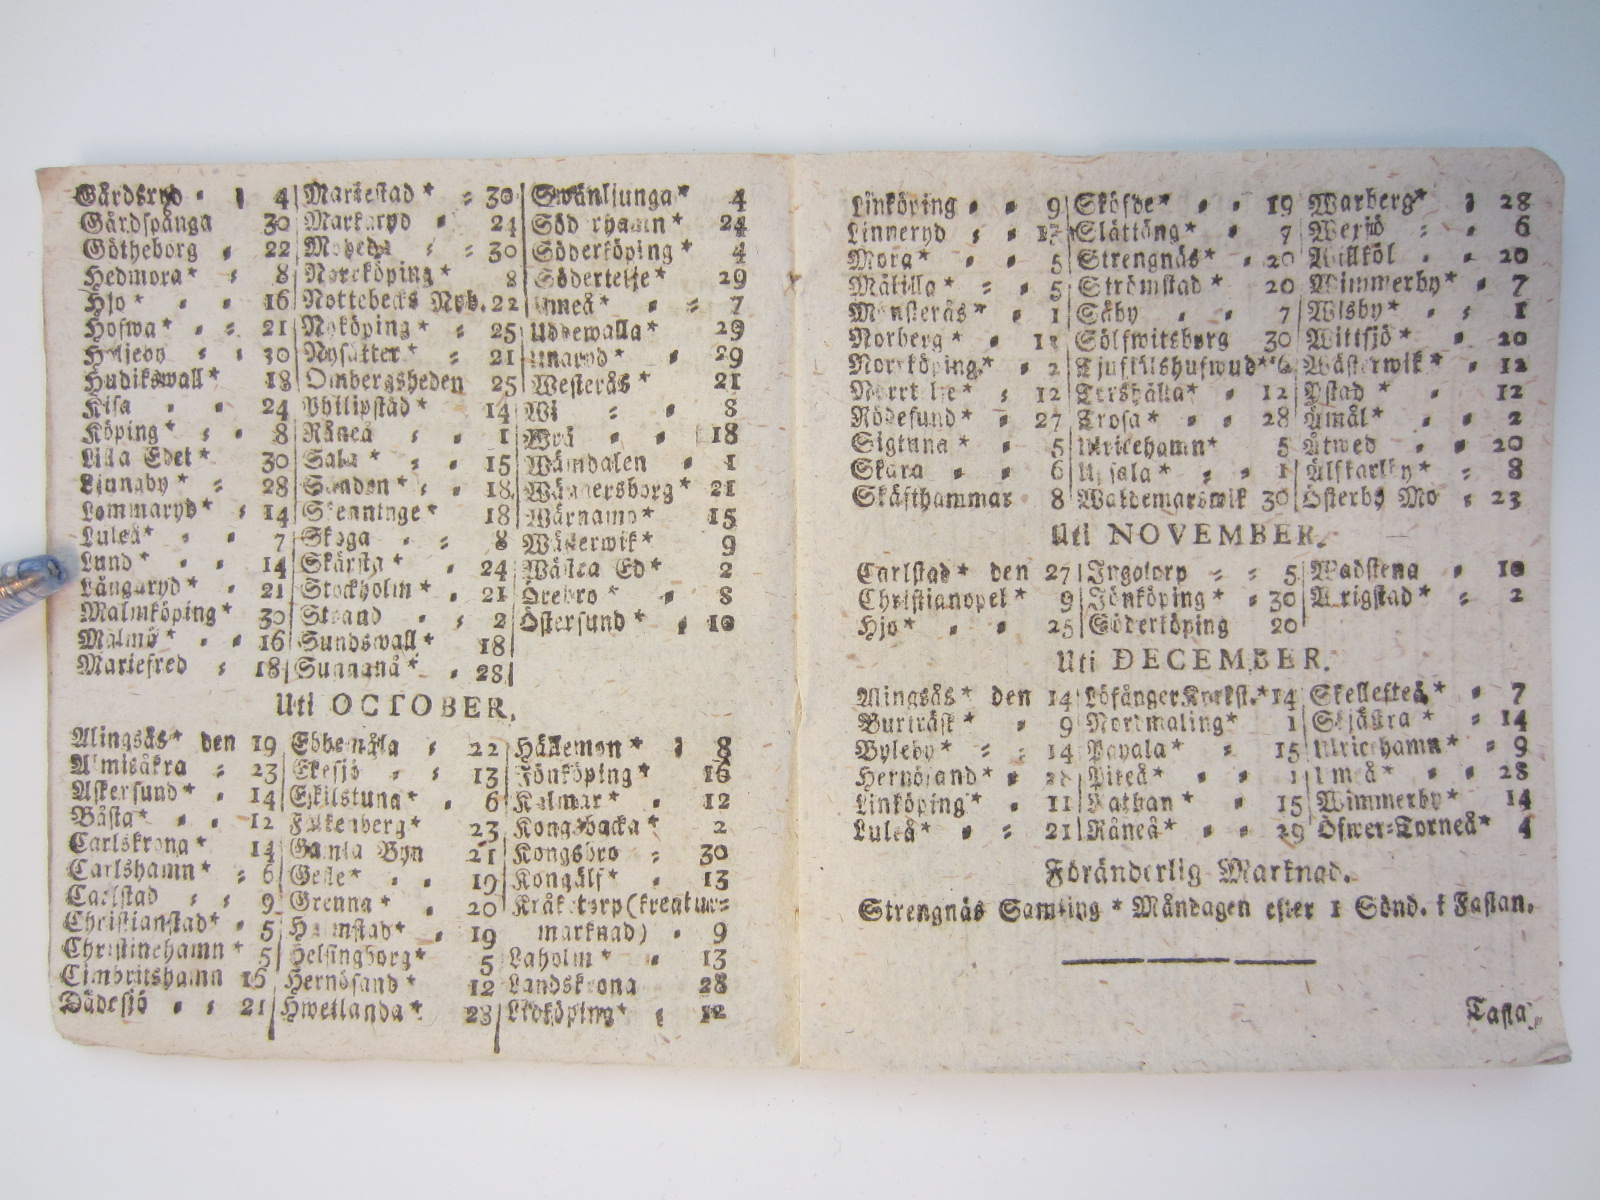 Gårdsryd 4 Mariestad* 30 Swänljunga* 4
Gårdspånga 30 Markaryd 24 24
Götheborg 22 30 Söderköping* 4
Hedmora* 8 Norrköping* 8 Södertelje* 29
Hjo* 16 Nottebecks Nyb. 22 7
Hofwa* 21 25 Uddewalla* 29
30 Nysätter* 21 29
Hudikswall* 18 Ombergsheden 25 Westerås* 21
Kisa 24 Philipstad* 14 Wi 8
Köping* 8 Råneå 1 Wrå 18
Lilla Edet* 30 Sala* 15 Wämdalen 1
Ljungby* 28 18 Wännersborg* 21
Lommaryd* 14 Skenninge* 18 Wärnamo* 15
Luleå* 7 8 9
Lund* 14 Skärsta* 24 Wästra Ed* 2
Långaryd* 21 Stockholm* 21 Örebro* 8
Malmköping* 30 Strand 2 Östersund* 10
Malmö* 16 Sundswall* 18
Mariefred 18 Sunnanå* 28
Uti OCTOBER.
Alingsås* den 19 22 8
Almisåkra 23 Ekesjö 13 Jönköping* 16
Askersund* 14 Eskilstuna* 6 Kalmar* 12
Båsta* 12 Falkenberg* 23 Kongsbacka* 2
Carlskrona* 14 Gamla Byn 21 Kongsbro 30
Carlshamn* 6 Gefle* 19 Kongälf* 13
Carlstad 9 Grenna* 20 (kreatur=
Christianstad* 5 Halmstad* 19 marknad) 9
Christinehamn* 5 Helsingborg* 5 Laholm* 13
Cimbritshamn 16 Hernösand* 12 Landskrona 28
Dädesjö 21 Hwetlanda* 28 Lidköping* 12
Linköping 9 Sköfde* 19 Warberg* 28
Linneryd Slättäng* 7 Wexjö 6
Mora* 5 Strengnäs* 20 Willköl 20
Målilla* 5 Strömstad* 20 Wimmerby* 7
Mönsterås* 1 Säby 7 Wisby* 1
Norberg* Sölfwitsborg 30 Wittsjö* 20
Norrköping* 2 Tjufkilshufwud* Wästerwik* 12
Norrtelje* 12 Torshälla* 12 Ystad* 12
Rödesund* 27 Trosa* 28 Åmål* 2
Sigtuna* 5 Ulricehamn* 5 Åtwed 20
Skara 6 Upsala* 1 Älfkarlby* 8
Skäfthammar 8 Waldemarswik 30 Österby Mo 23
Uti NOVEMBER.
Carlstad* den 27 Ingotorp 5 Wadstena 10
Christianopel* 9 Jönköping* 30 Wrigstad* 2
Hjo* 25 Söderköping 20
Uti DECEMBER.
Alingsås* den 14 Löfånger Kyrkst.* 14 Skellefteå* 7
Burträsk* 9 Nordmaling* 1 14
Byleby* 14 Payala* 15 Ulricehamn* 9
Hernösand* Piteå* 1 Umeå* 28
Linköping* 11 Rathan* 15 Wimmerby* 14
Luleå* 21 Råneå* 29 Öfwer=Torneå* 4
Föränderlig Marknad.
Strengnäs Samting* Måndagen efter 1 Sönd. i Fastan.